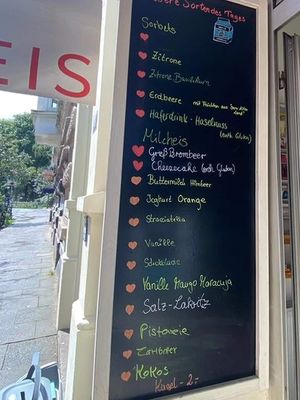 Unsere Sorten des Tages
EIS
Sorbets
Zitrone
Zitrone Basilikum
Erdbeere
Haferdrink-Haselnuss
(enth. Gluten)
Milcheis
Brombeer
Cheesecake (enth. Gluten)
Buttermilch Himbeer
Joghurt Orange
Stracciatella
Vanille
Schokolade
Vanille Mango Maracuja
Salz-Lakritz
Pistazie
Zartbitter
Kokos
Kugel - 2.-